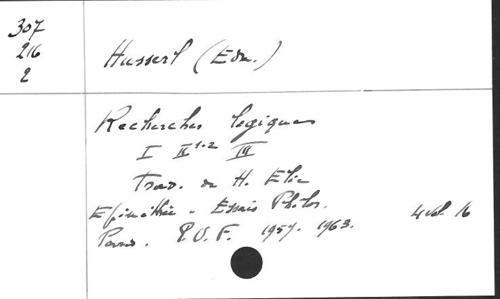 307
216
2
Husserl (Edm.)
Recherches logiques
I II 1-2 III
Trad. de H. Elie
Epiméthée. Essais Philos.
Paris. P.U.F. 1959. 1963. 4 vol. 16